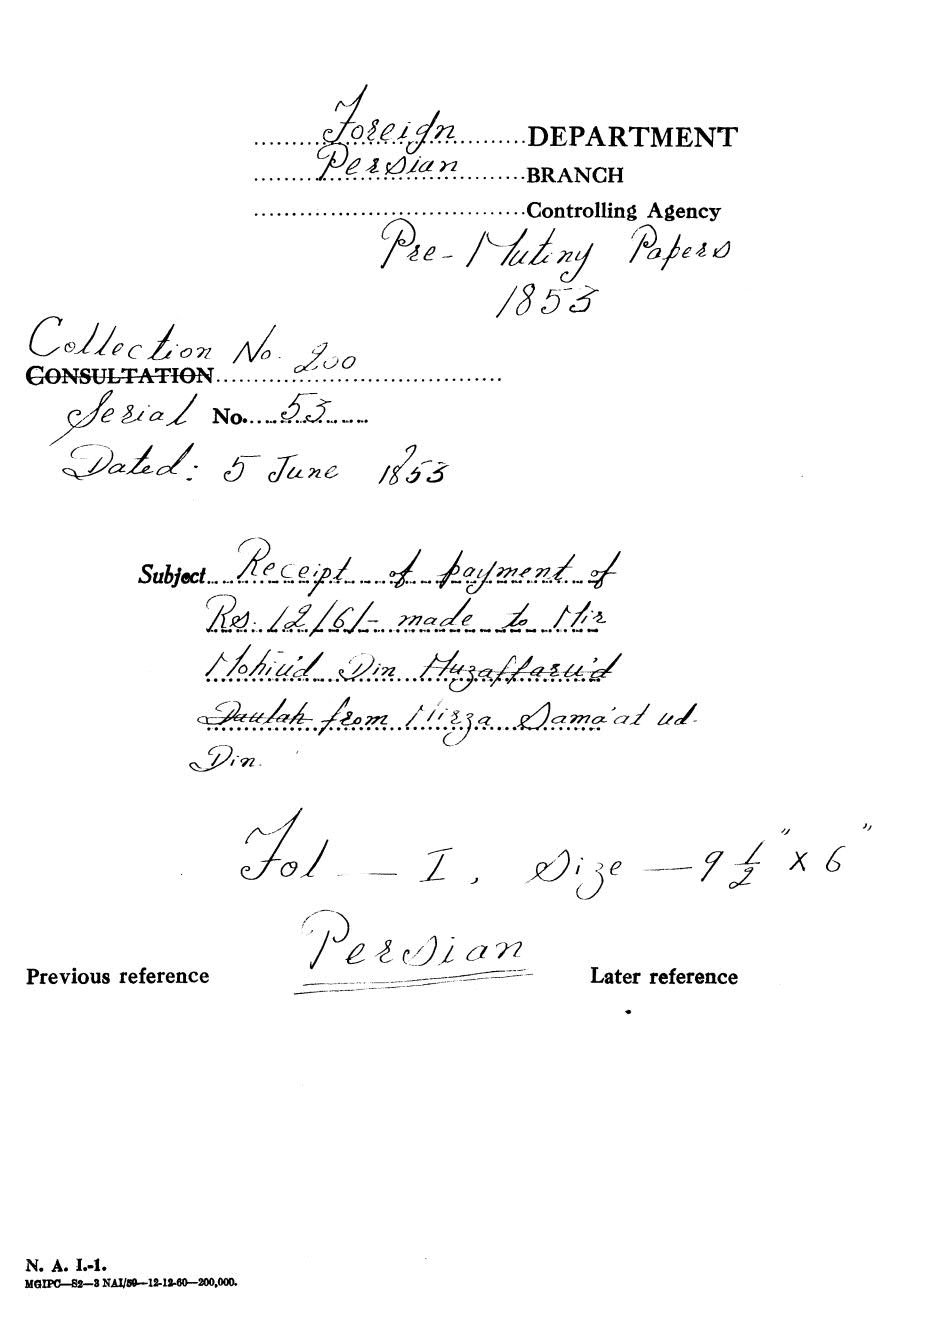 Foreign DEPARTMENT
Persian BRANCH
Controlling Agency
Pre-Mutiny Papers
1853
Collection No. 200
CONSULTATION
Serial No. 53
Dated: 5 June 1853
Subject Receipt of payment of
Rs. 12/6/- made to Mir
Mohiu'd Din Muzaffaru'd
Daulah from Mirza Sama'at ud-
Din.
Fol — I, Size — 9 1/2" x 6"
Persian
Previous reference Later reference
N. A. I.-1.
MGIPC—S2—3 NAI/59—12-12-60—200,000.